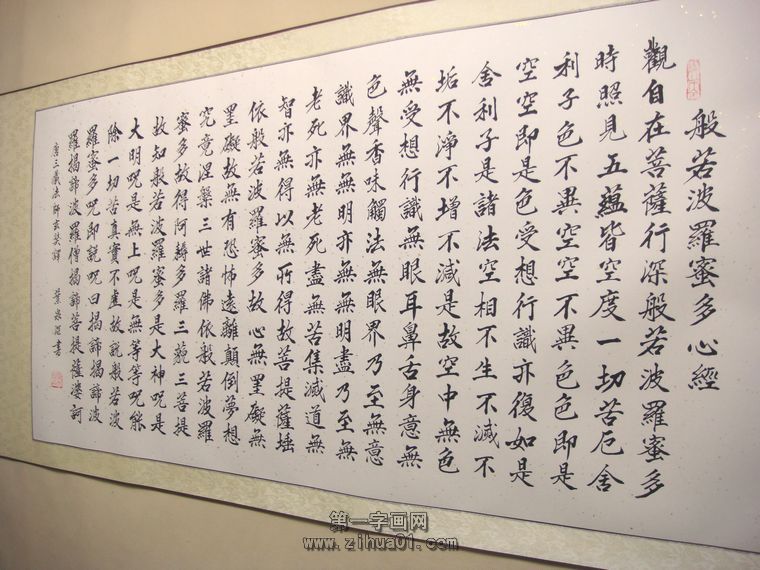 般若波羅蜜多心經
觀自在菩薩行深般若波羅蜜多
時照見五蘊皆空度一切苦厄舍
利子色不異空空不異色色即是
空空即是色受想行識亦復如是
舍利子是諸法空相不生不滅不
垢不淨不增不減是故空中無色
無受想行識無眼耳鼻舌身意無
色聲香味觸法無眼界乃至無意
識界無無明亦無無明盡乃至無
老死亦無老死盡無苦集滅道無
智亦無得以無所得故菩提薩埵
依般若波羅蜜多故心無罣礙無
罣礙故無有恐怖遠離顛倒夢想
究竟涅槃三世諸佛依般若波羅
蜜多故得阿耨多羅三藐三菩提
故知般若波羅蜜多是大神咒是
大明咒是無上咒是無等等咒能
除一切苦真實不虛故說般若波
羅蜜多咒即說咒曰揭諦揭諦波
羅揭諦波羅僧揭諦菩提薩婆訶
唐三藏法師玄奘譯 葉 書
第一字画网
www.zihua01.com